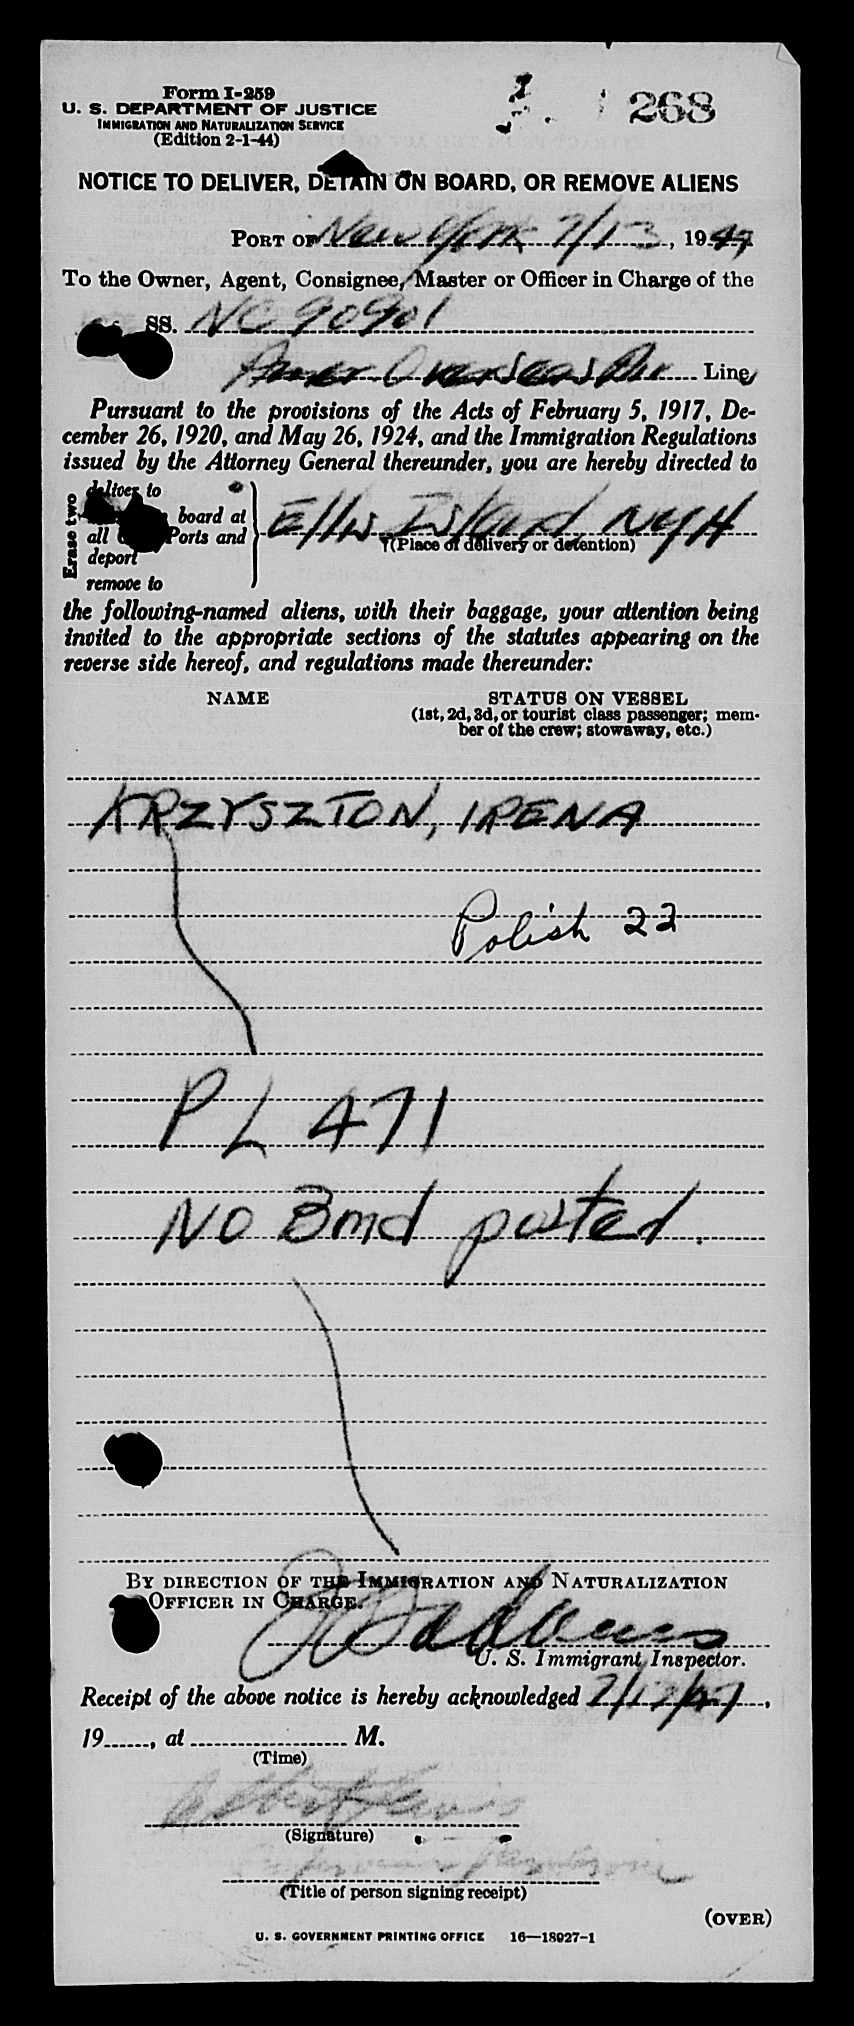 Form I-259
U. S. DEPARTMENT OF JUSTICE
IMMIGRATION AND NATURALIZATION SERVICE
(Edition 2-1-44)
268
NOTICE TO DELIVER, DETAIN ON BOARD, OR REMOVE ALIENS
PORT OF New York 7/13, 1947
To the Owner, Agent, Consignee, Master or Officer in Charge of the
SS. NC 90901
Amer Overseas Air Line,
Pursuant to the provisions of the Acts of February 5, 1917, De-
cember 26, 1920, and May 26, 1924, and the Immigration Regulations
issued by the Attorney General thereunder, you are hereby directed to
Erase two
deliver to
board at
all Ports and
deport
remove to
Ellis Island NYH
(Place of delivery or detention)
the following-named aliens, with their baggage, your attention being
invited to the appropriate sections of the statutes appearing on the
reverse side hereof, and regulations made thereunder:
NAME STATUS ON VESSEL
(1st, 2d, 3d, or tourist class passenger; mem-
ber of the crew; stowaway, etc.)
KRZYSZTON, IRENA
Polish 22
PL 471
No Bond posted.
BY DIRECTION OF THE IMMIGRATION AND NATURALIZATION
OFFICER IN CHARGE.
U. S. Immigrant Inspector.
Receipt of the above notice is hereby acknowledged 7/13/47,
19, at M.
(Time)
(Signature)
(Title of person signing receipt)
(OVER)
U. S. GOVERNMENT PRINTING OFFICE 16—18927-1